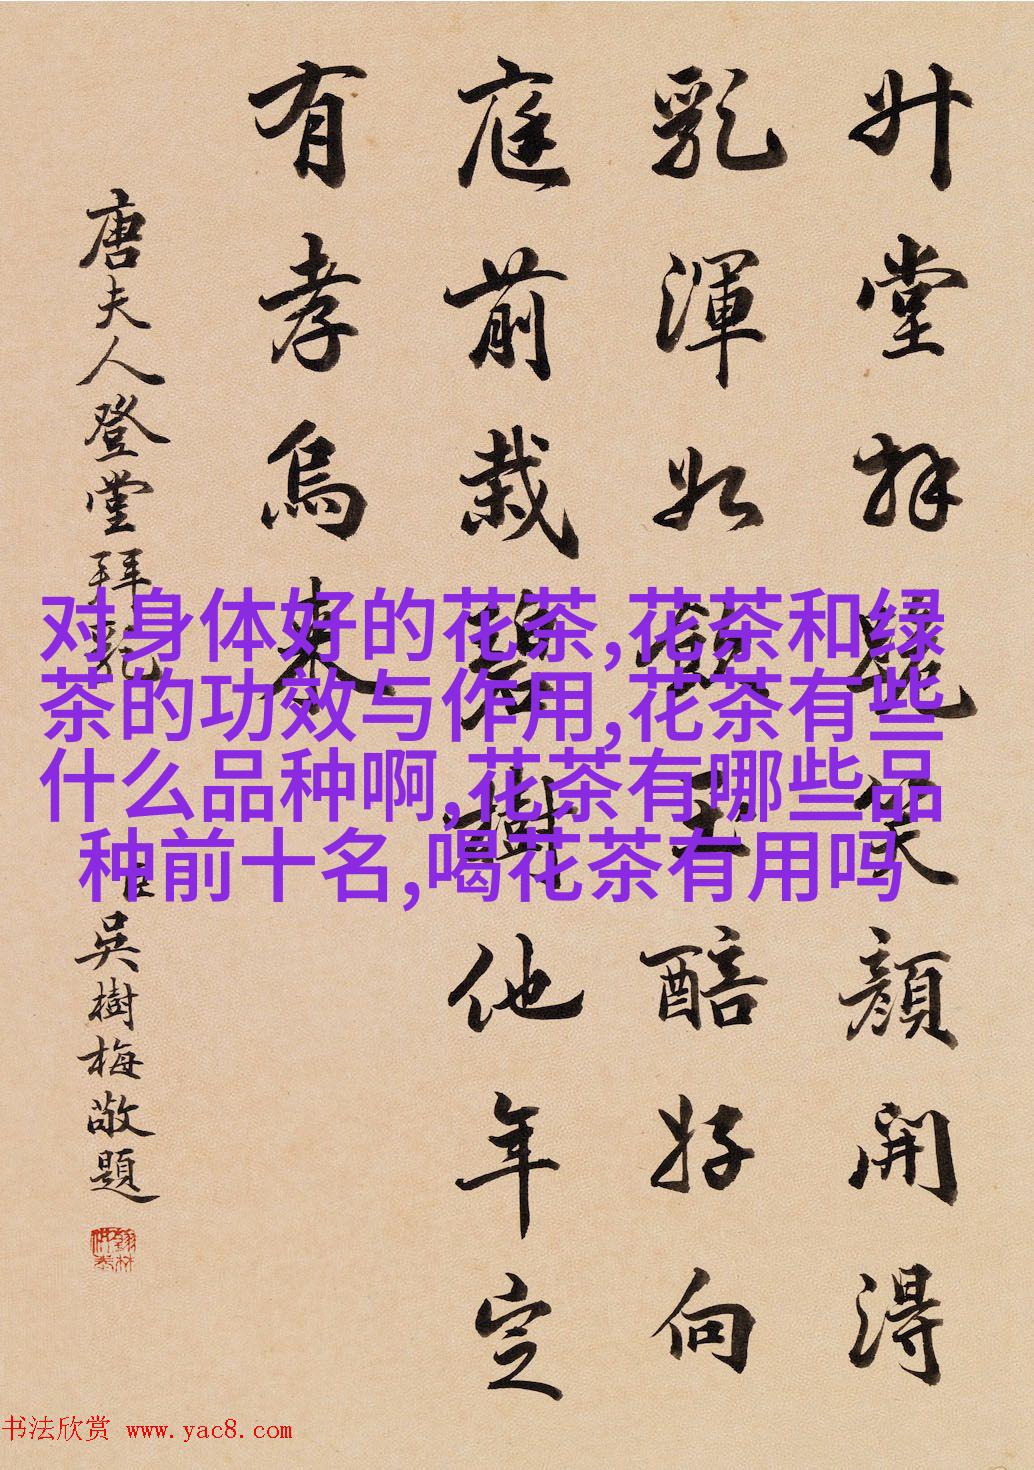 升堂拜罷笑顔開得
乳渾如飲玉醅好向
庭前栽碧樹他年定
有孝烏來
唐夫人登堂拜乳 臣吳樹梅敬題
对身体好的花茶,花茶和绿
茶的功效与作用,花茶有些
什么品种啊,花茶有哪些品
种前十名,喝花茶有用吗
书法欣赏 www.yac8.com